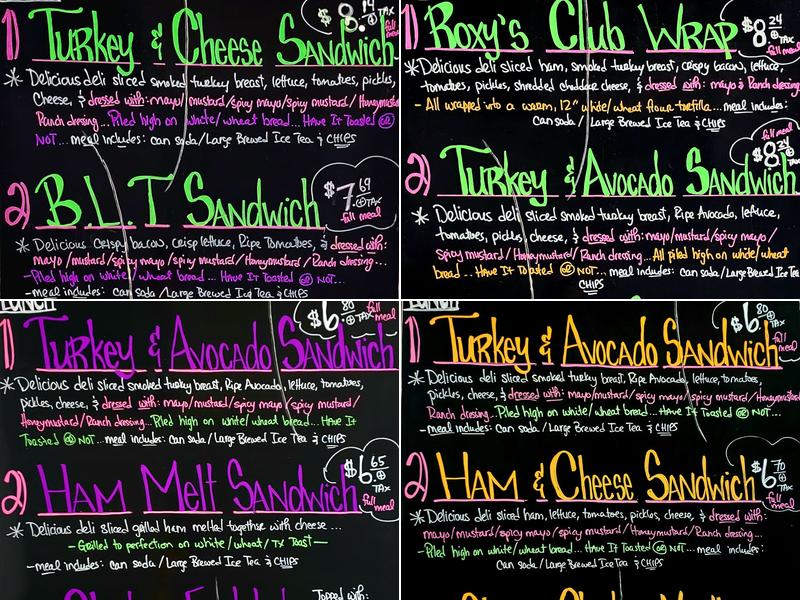 1) Turkey & Cheese Sandwich
+ TAX
full meal
* Delicious deli sliced smoked turkey breast, lettuce, tomatoes, pickles,
Cheese, & dressed with: mayo/mustard/spicy mayo/spicy mustard/Honeymustard
Ranch dressing... Piled high on white/wheat bread... Have It Toasted OR
NOT... meal includes: can soda/Large Brewed Ice Tea & CHIPS
2) B.L.T Sandwich
$7.69 + TAX
full meal
* Delicious Crispy bacon, crisp lettuce, Ripe Tomatoes, & dressed with:
mayo/mustard/spicy mayo/spicy mustard/Honeymustard/Ranch dressing...
- Piled high on white/wheat bread... Have It Toasted OR NOT...
- meal includes: can soda/Large Brewed Ice Tea & CHIPS
1) Roxy's Club Wrap
$8.24 + TAX
full meal
* Delicious deli sliced ham, smoked turkey breast, crispy bacon, lettuce,
tomatoes, pickles, shredded cheddar cheese, & dressed with: mayo & Ranch dressing
- All wrapped into a warm, 12" white/wheat flour tortilla... meal includes:
Can soda/Large Brewed Ice Tea & CHIPS
2) Turkey & Avocado Sandwich
full meal
$8.24 + TAX
* Delicious deli sliced smoked turkey breast, Ripe Avocado, lettuce,
tomatoes, pickles, cheese, & dressed with: mayo/mustard/spicy mayo/
spicy mustard/Honeymustard/Ranch dressing... All piled high on white/wheat
bread... Have It Toasted OR NOT... meal includes: can soda/Large Brewed Ice Tea &
CHIPS
Lunch
1) Turkey & Avocado Sandwich
$6.80 + TAX
full meal
* Delicious deli sliced smoked turkey breast, Ripe Avocado, lettuce, tomatoes,
pickles, cheese, & dressed with: mayo/mustard/spicy mayo/spicy mustard/
Honeymustard/Ranch dressing... Piled high on white/wheat bread... Have It
Toasted OR NOT... meal includes: can soda/Large Brewed Ice Tea & CHIPS
2) Ham Melt Sandwich
$6.65 + TAX
full meal
* Delicious deli sliced grilled ham melted together with cheese...
- Grilled to perfection on white/wheat/TX Toast -
- meal includes: can soda/Large Brewed Ice Tea & CHIPS
Topped with:
1) Turkey & Avocado Sandwich
$6.80 + TAX
full meal
* Delicious deli sliced smoked turkey breast, Ripe Avocado, lettuce, tomatoes,
pickles, cheese, & dressed with: mayo/mustard/spicy mayo/spicy mustard/Honeymustard
Ranch dressing... Piled high on white/wheat bread... Have It Toasted OR NOT...
- meal includes: can soda/Large Brewed Ice Tea & CHIPS
2) Ham & Cheese Sandwich
$6.70 + TAX
full meal
* Delicious deli sliced ham, lettuce, tomatoes, pickles, cheese, & dressed with:
mayo/mustard/spicy mayo/spicy mustard/Honeymustard/Ranch dressing...
- Piled high on white/wheat bread... Have It Toasted OR NOT... meal includes:
Can soda/Large Brewed Ice Tea & CHIPS